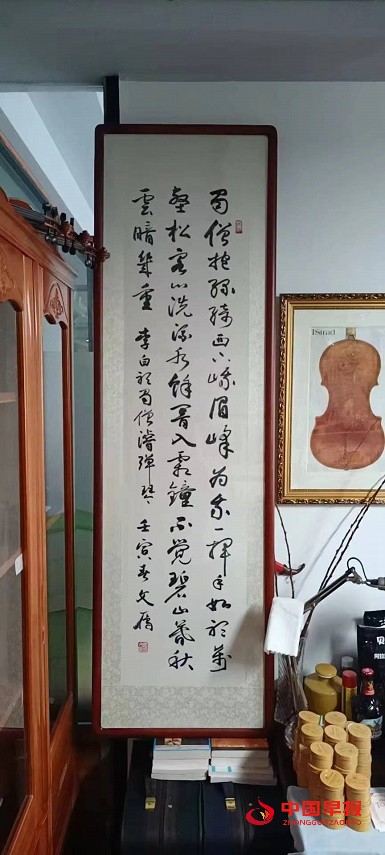 蜀僧抱綠綺西下峨眉峰為我一揮手如聽萬
壑松客心洗流水餘音入霜鐘不覺碧山暮秋
雲暗幾重 李白聽蜀僧濬彈琴 壬寅春文
Strad
中国早报
ZHONGGUOZAOBAO